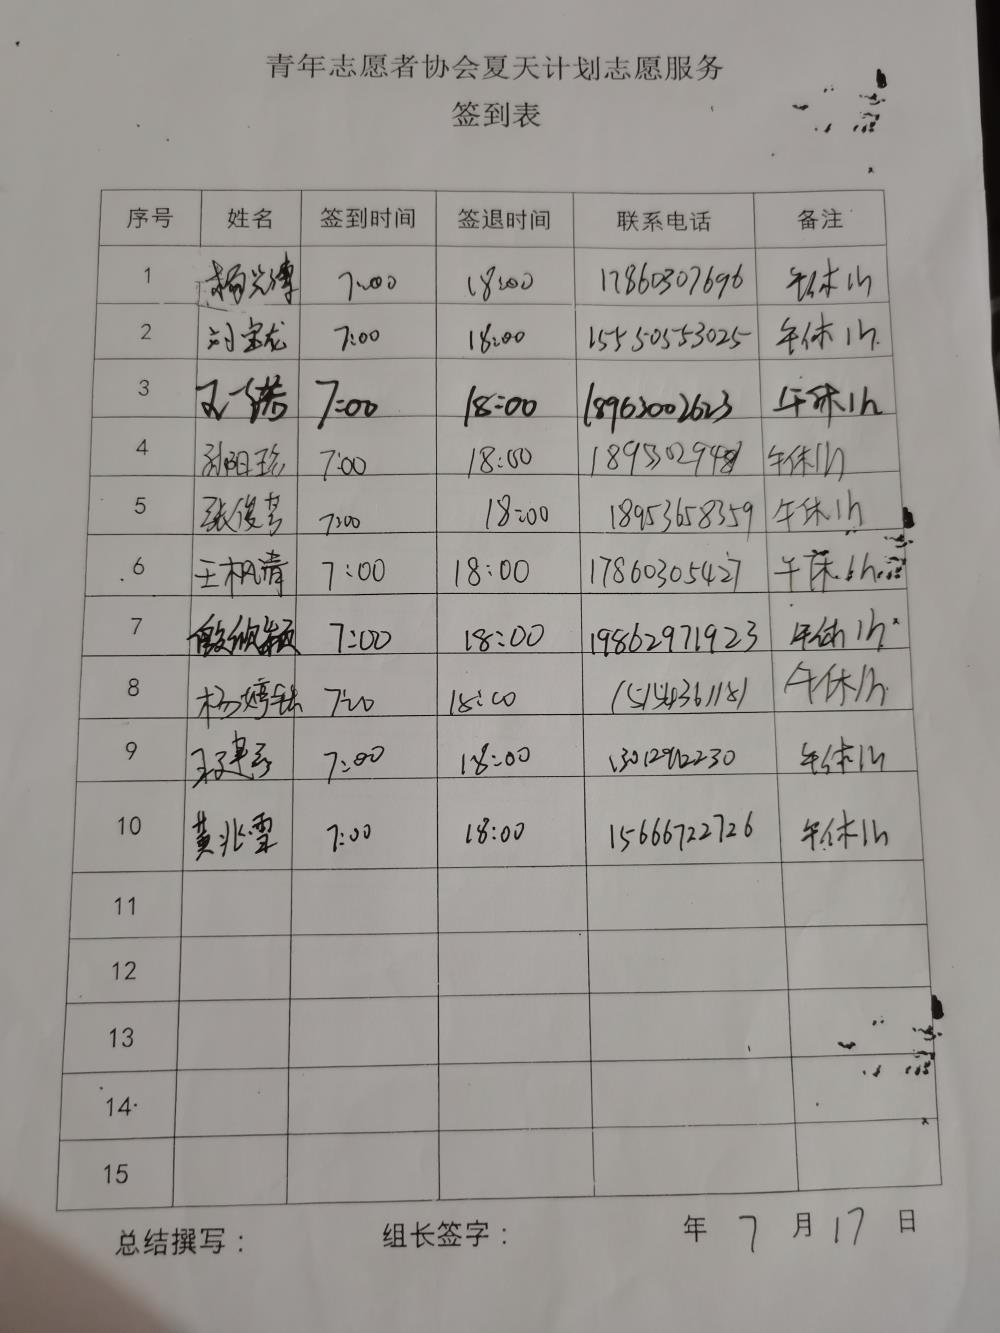 青年志愿者协会夏天计划志愿服务
签到表
序号 姓名 签到时间 签退时间 联系电话 备注
1 杨兴博 7:00 18:00 17860307696 午休1h
2 刘宝龙 7:00 18:00 15550553025 午休1h
3 王一诺 7:00 18:00 18963002623 午休1h
4 孙阳珍 7:00 18:00 午休1h
5 张俊芳 7:00 18:00 18953658359 午休1h
6 王枫清 7:00 18:00 17860305427 午休1h
7 7:00 18:00 19862971923 午休1h
8 杨婷钰 7:00 18:00 15154361181 午休1h
9 7:00 18:00 午休1h
10 黄兆雪 7:00 18:00 15666722726 午休1h
11
12
13
14
15
总结撰写: 组长签字: 年 7 月 17 日